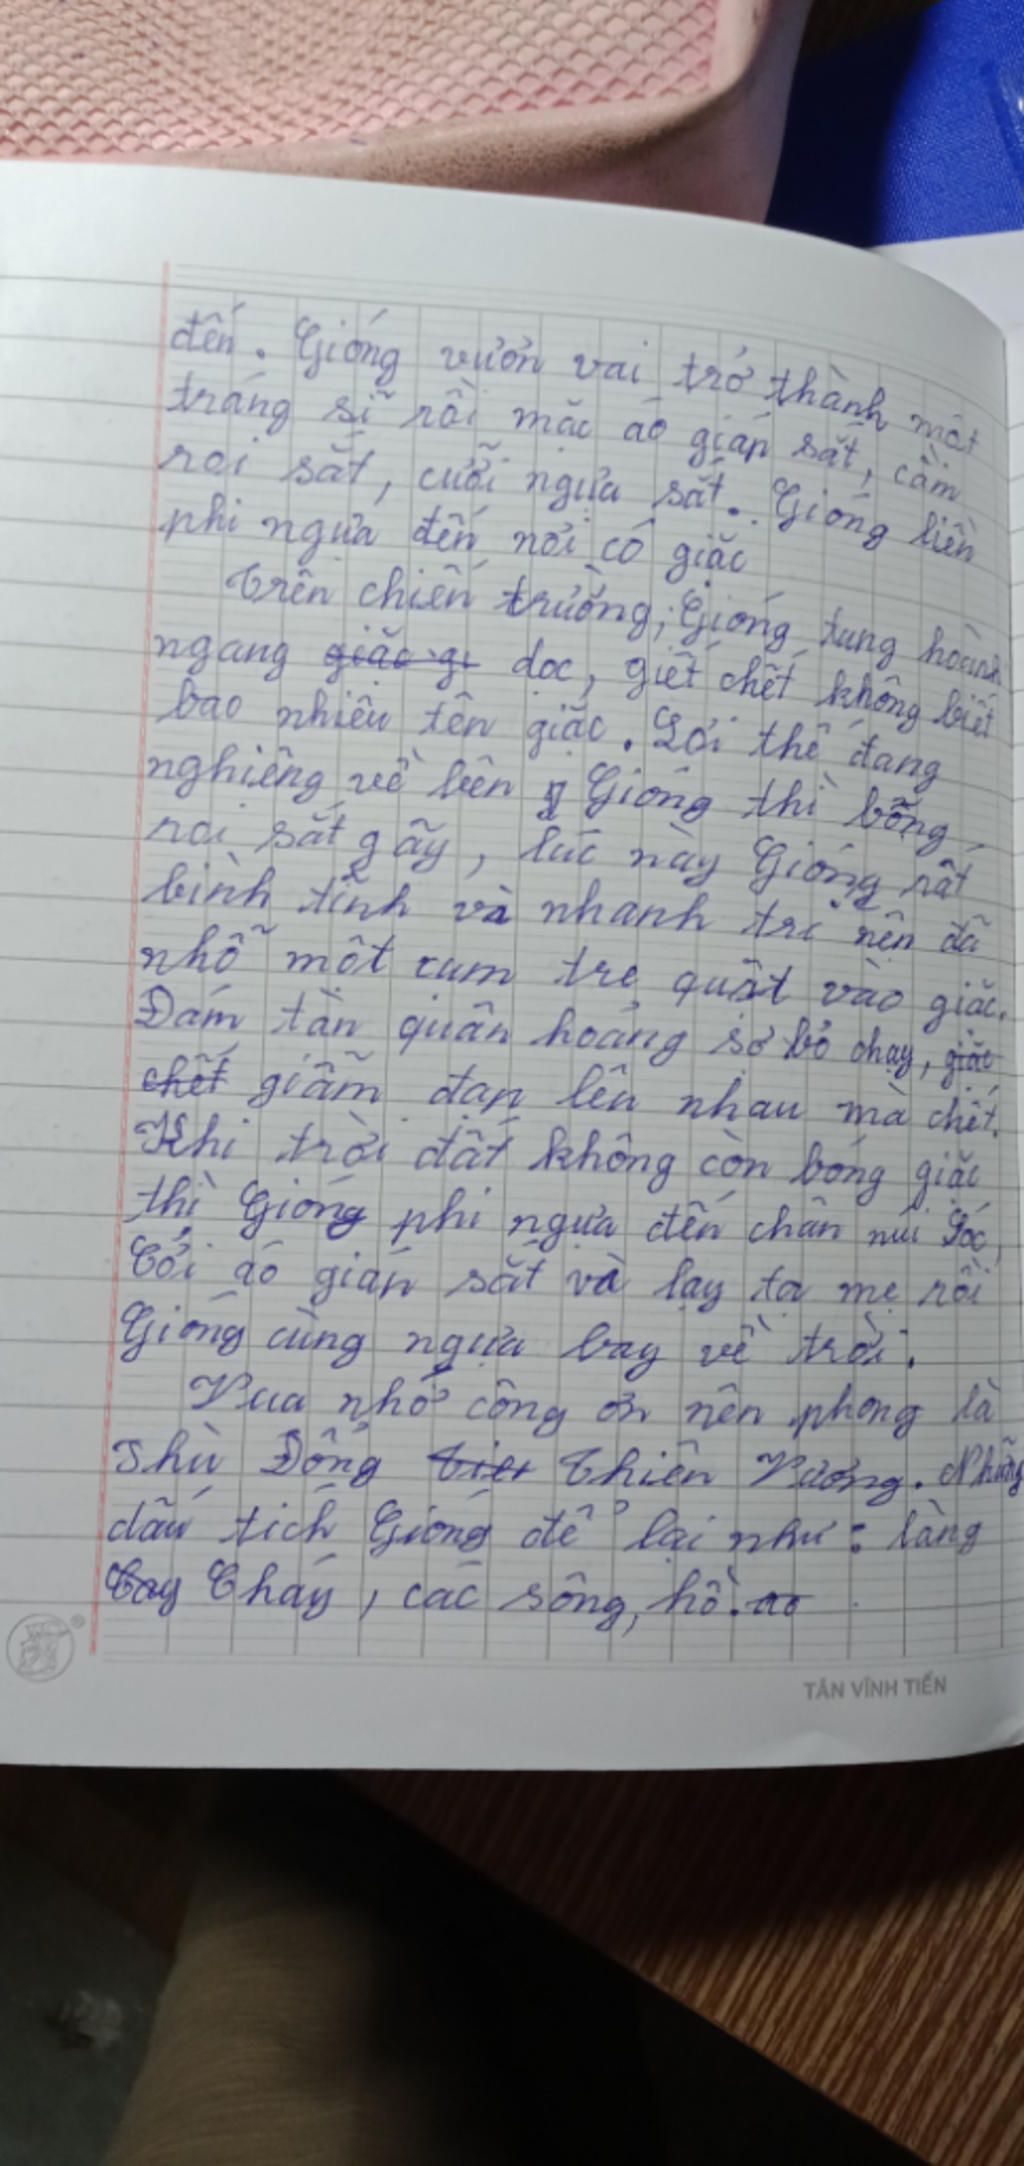 đến. Gióng vươn vai trở thành một
tráng sĩ rồi mặc áo giáp sắt, cầm
roi sắt, cưỡi ngựa sắt. Gióng liền
phi ngựa đến nơi có giặc
Trên chiến trường, Gióng tung hoành
ngang giặc gi dọc, giết chết không biết
bao nhiêu tên giặc. Lợi thế đang
nghiêng về bên g Gióng thì bỗng
roi sắt gãy, lúc này Gióng rất
bình tĩnh và nhanh trí nên đã
nhổ một cụm tre quật vào giặc.
Đám tàn quân hoảng sợ bỏ chạy, giặc
chết giẫm đạp lên nhau mà chết.
Khi trời đất không còn bóng giặc
thì Gióng phi ngựa đến chân núi Sóc,
Cởi áo giáp sắt và lạy tạ mẹ rồi
Gióng cùng ngựa bay về trời.
Vua nhớ công ơn nên phong là
Phù Đổng Thiên Vương. Những
dấu tích Gióng để lại như: làng
Cháy, các sông, hồ. ao
TÂN VĨNH TIẾN